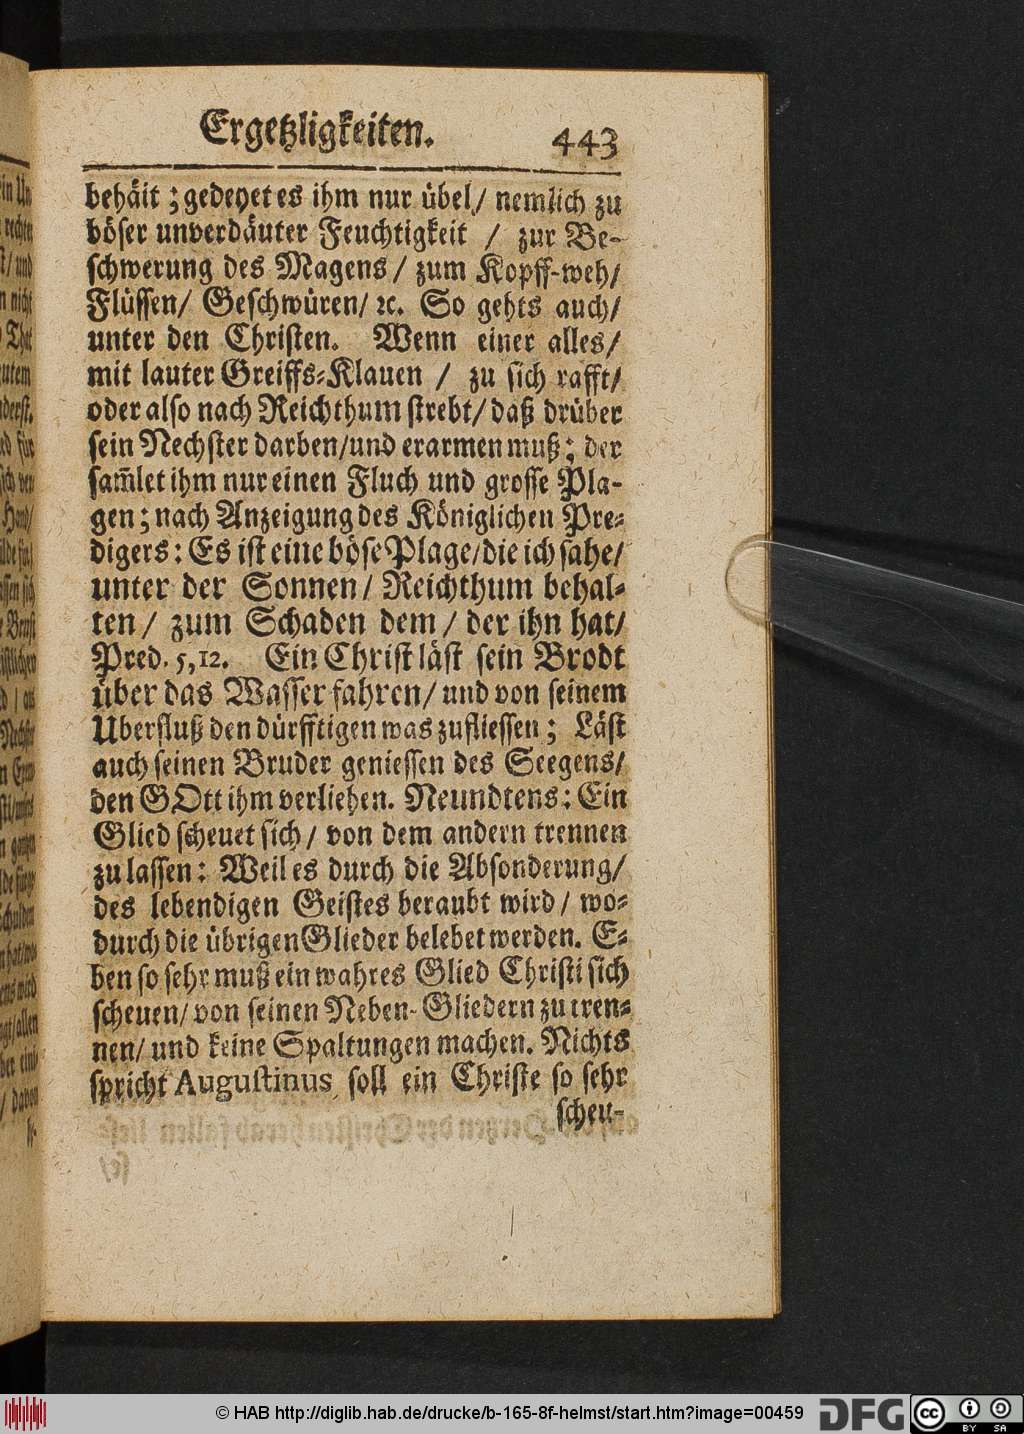 Ergetzligkeiten. 443
behäit; gedeyet es ihm nur übel/ nemlich zu
böser unverdäuter Feuchtigkeit / zur Be-
schwerung des Magens/ zum Kopff-weh/
Flüssen/ Geschwüren/ ꝛc. So gehts auch/
unter den Christen. Wenn einer alles/
mit lauter Greiffs-Klauen / zu sich rafft/
oder also nach Reichthum strebt/ daß drüber
sein Nechster darben/und erarmen muß; der
sam̃let ihm nur einen Fluch und grosse Pla-
gen; nach Anzeigung des Königlichen Pre-
digers: Es ist eine böse Plage/die ich sahe/
unter der Sonnen/ Reichthum behal-
ten/ zum Schaden dem/ der ihn hat/
Pred. 5,12. Ein Christ läst sein Brodt
über das Wasser fahren/ und von seinem
Uberfluß den dürfftigen was zufliessen; Läst
auch seinen Bruder geniessen des Seegens/
den GOtt ihm verliehen. Neundtens: Ein
Glied scheuet sich/ von dem andern trennen
zu lassen: Weil es durch die Absonderung/
des lebendigen Geistes beraubt wird/ wo-
durch die übrigen Glieder belebet werden. E-
ben so sehr muß ein wahres Glied Christi sich
scheuen/ von seinen Neben-Gliedern zu tren-
nen/ und keine Spaltungen machen. Nichts
spricht Augustinus, soll ein Christe so sehr
scheu-
© HAB http://diglib.hab.de/drucke/b-165-8f-helmst/start.htm?image=00459
DFG
cc BY SA